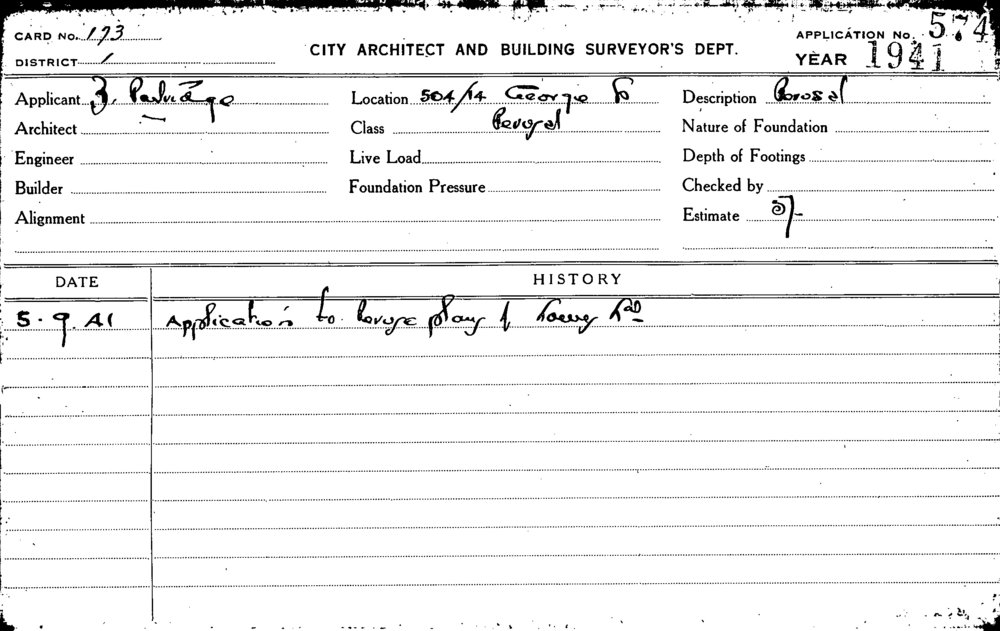 CARD No. 173
DISTRICT 1
CITY ARCHITECT AND BUILDING SURVEYOR'S DEPT.
APPLICATION No. 574
YEAR 1941
Applicant
Location 504/14 George St
Description Perusal
Architect
Class Perusal
Nature of Foundation
Engineer
Live Load
Depth of Footings
Builder
Foundation Pressure
Checked by
Alignment
Estimate
DATE HISTORY
5.9.41 Application to peruse plans of